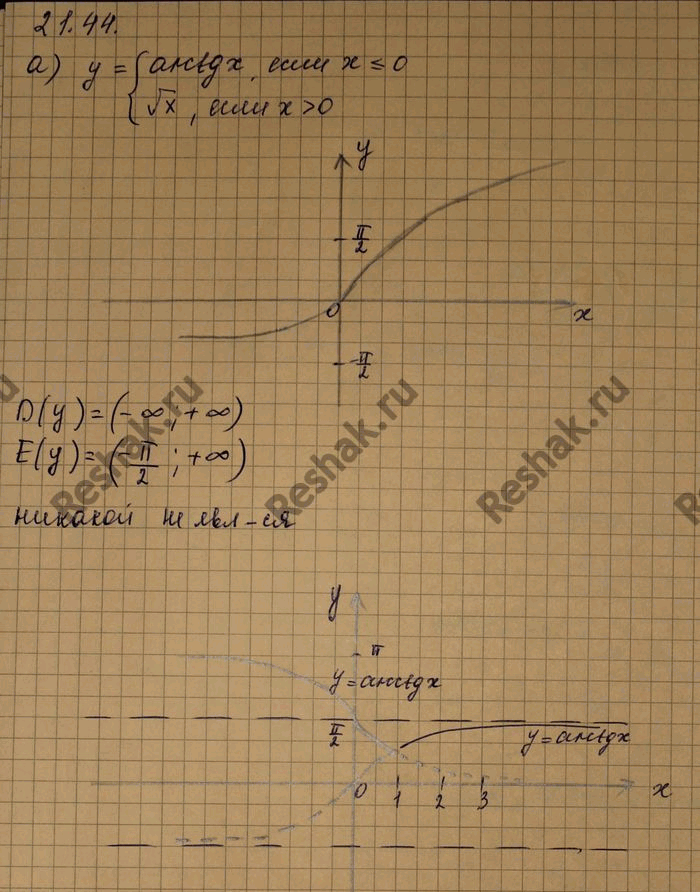 21.44.
а) y = { arctgx, если x ≤ 0
√x, если x > 0
y
π/2
0
x
-π/2
D(y) = (-∞; +∞)
E(y) = (-π/2; +∞)
никакой не явл-ся
Reshak.ru Reshak.ru Reshak.ru
y
π
y = arcctgx
π/2
y = arctgx
0 1 2 3 x